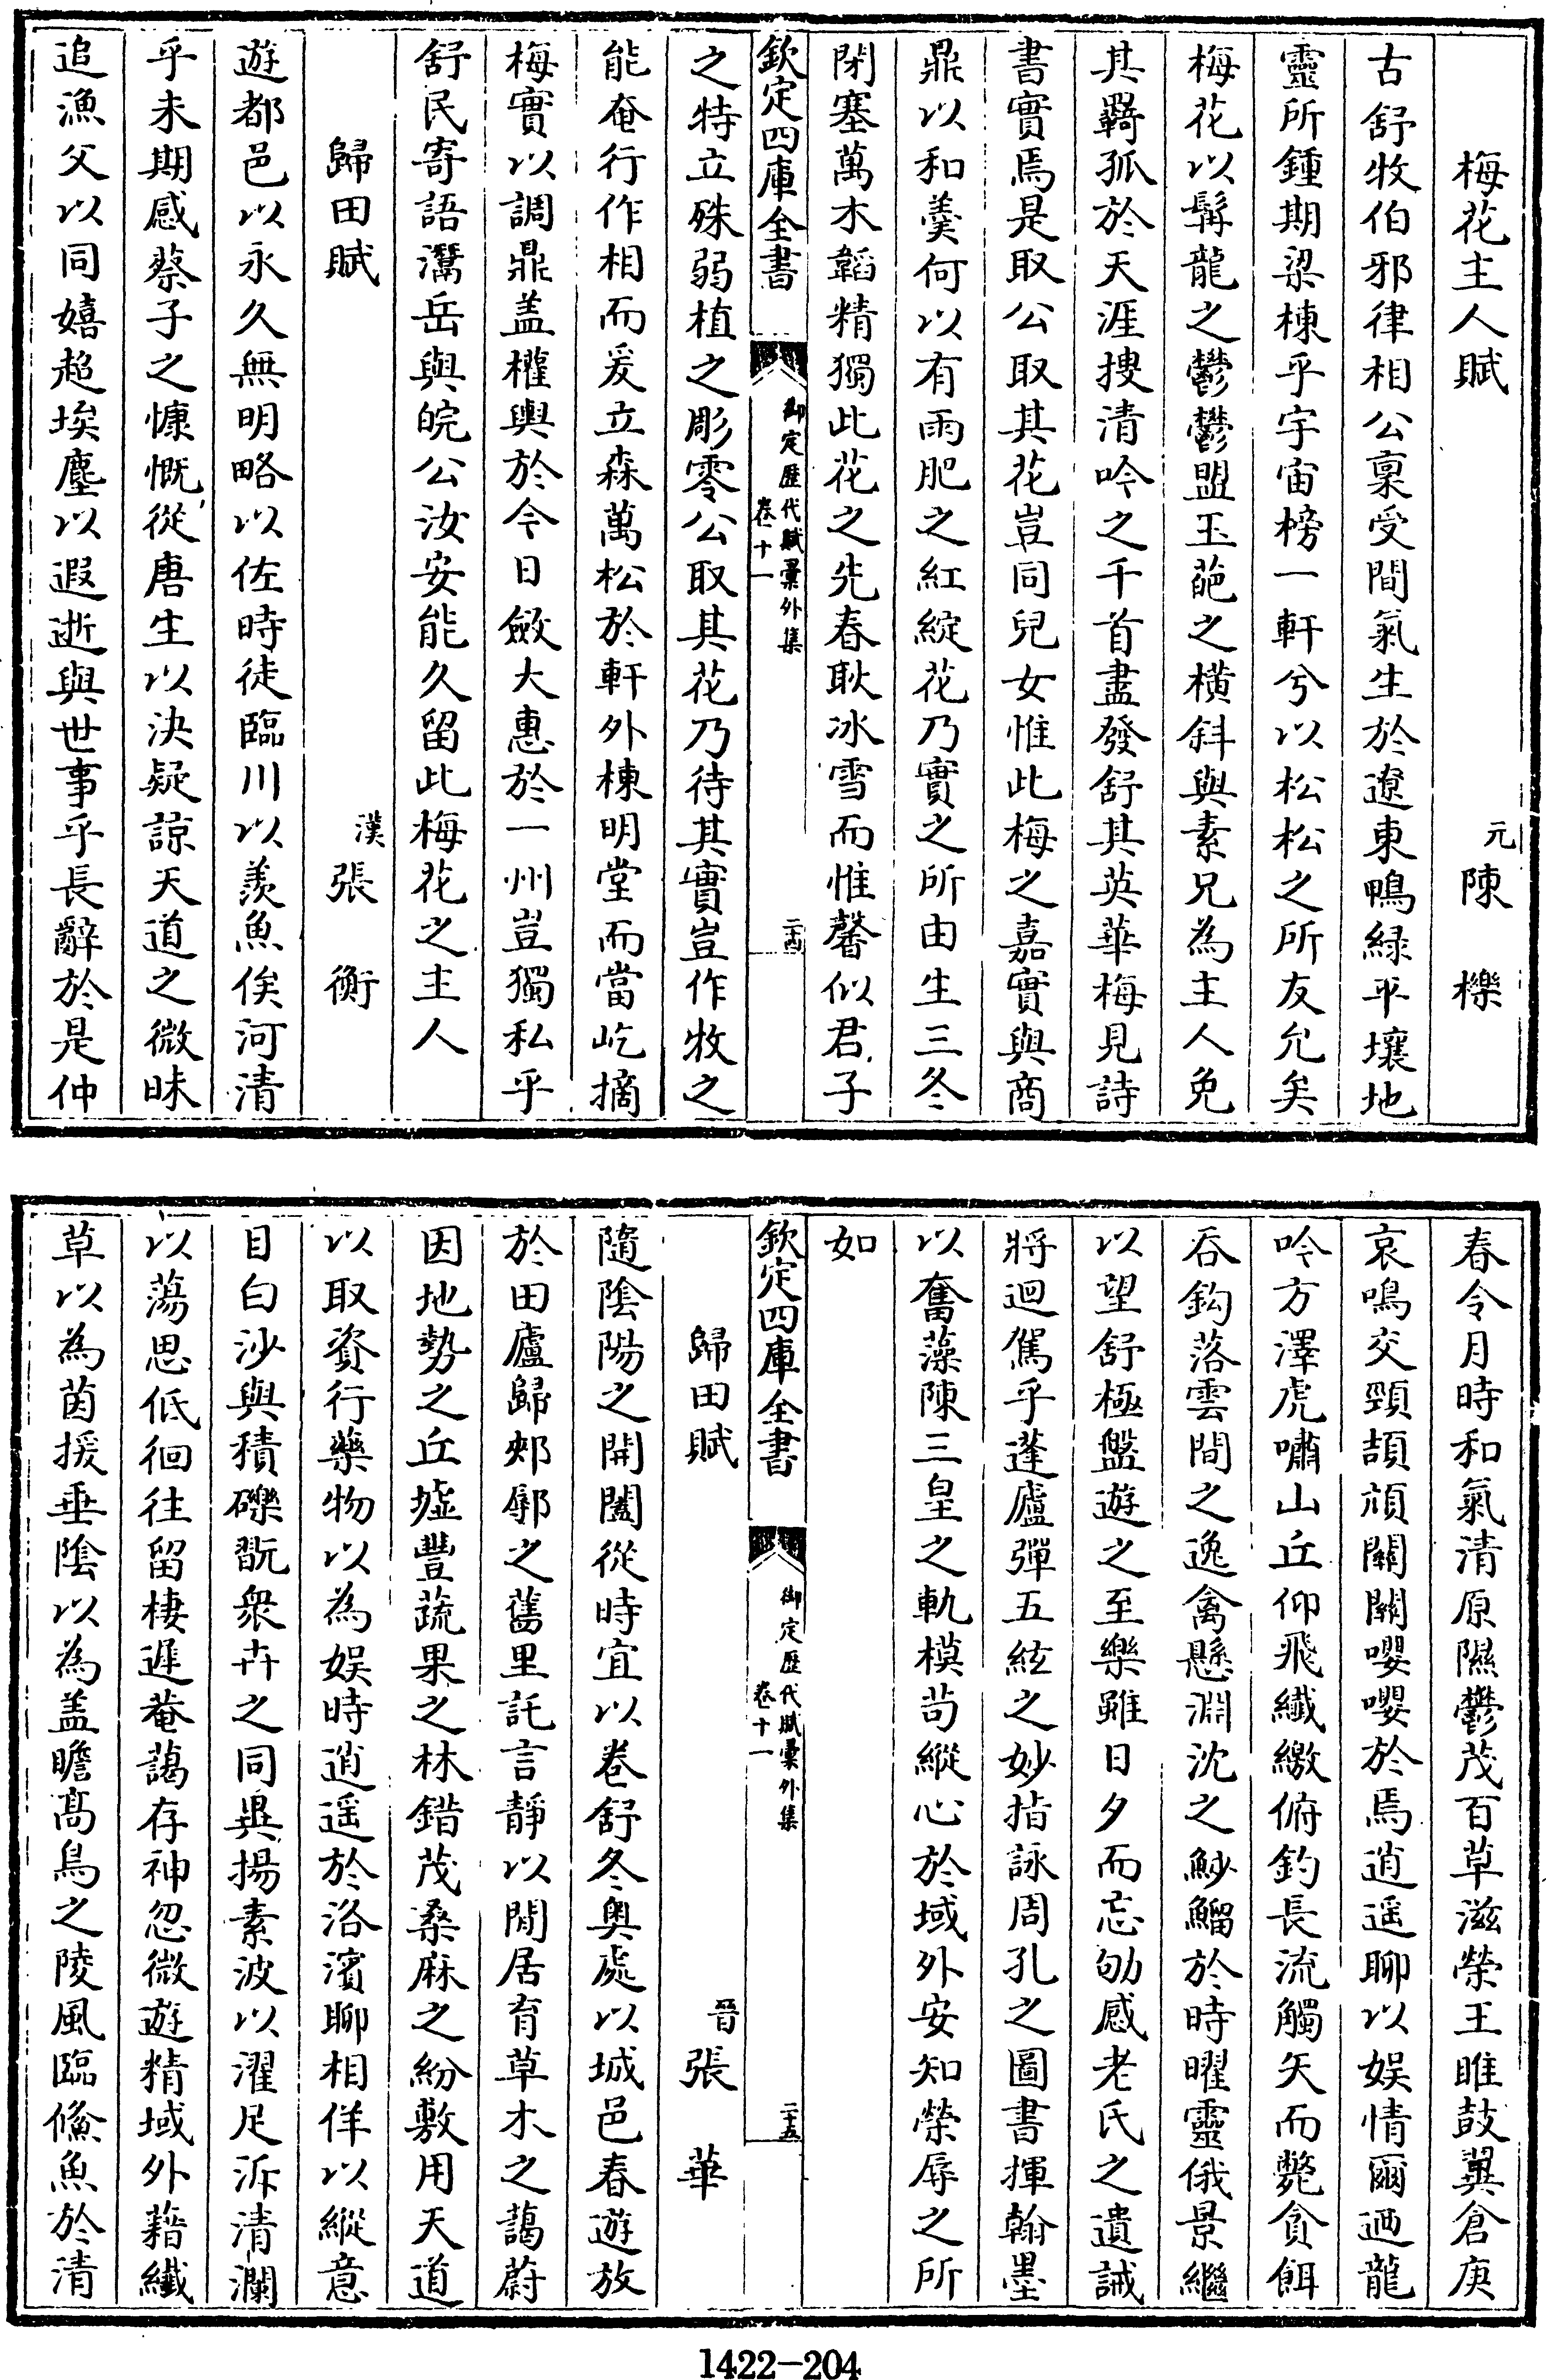 梅花主人賦
元陳櫟
古舒牧伯邪律相公稟受間氣生於遼東鴨緑平壤地
靈所鍾期梁棟乎宇宙榜一軒兮以松松之所友允矣
梅花以髯龍之鬱鬱盟玉葩之橫斜與素兄為主人免
其羇孤於天涯搜清吟之千首盡發舒其英華梅見詩
書實焉是取公取其花豈同兒女惟此梅之嘉實與商
鼎以和羮何以有雨肥之紅綻花乃實之所由生三冬
閉塞萬木韜精獨此花之先春耿冰雪而惟馨似君子
欽定四庫全書
御定歷代賦彙外集
卷十一
二十四
之特立殊弱植之彫零公取其花乃待其實豈作牧之
能奄行作相而爰立森萬松於軒外棟明堂而當屹摘
梅實以調鼎盖權輿於今日斂大惠於一州豈獨私乎
舒民寄語灊岳與皖公汝安能久留此梅花之主人
歸田賦
漢張衡
遊都邑以永久無明略以佐時徒臨川以羨魚俟河清
乎未期感蔡子之慷慨從唐生以決疑諒天道之微昧
追漁父以同嬉超埃塵以遐逝與世事乎長辭於是仲
春令月時和氣清原隰鬱茂百草滋榮王睢鼓翼倉庚
哀鳴交頸頡頏關關嚶嚶於焉逍遥聊以娱情爾迺龍
吟方澤虎嘯山丘仰飛纖繳俯釣長流觸矢而斃貪餌
吞鈎落雲間之逸禽懸淵沈之魦鰡於時曜靈俄景繼
以望舒極盤遊之至樂雖日夕而忘劬感老氏之遺誡
將迴駕乎蓬廬彈五絃之妙指詠周孔之圖書揮翰墨
以奮藻陳三皇之軌模茍縱心於域外安知榮辱之所
如
欽定四庫全書
御定歷代賦彙外集
卷十一
二十五
歸田賦
晉張華
隨陰陽之開闔從時宜以卷舒冬奥處以城邑春遊放
於田廬歸郟鄏之舊里託言靜以閒居育草木之藹蔚
因地勢之丘墟豐蔬果之林錯茂桑麻之紛敷用天道
以取資行藥物以為娱時逍遥於洛濱聊相佯以縱意
目白沙與積礫翫衆卉之同異揚素波以濯足泝清瀾
以蕩思低徊往留棲遲菴藹存神忽微遊精域外藉纖
草以為茵援垂陰以為盖瞻髙鳥之陵風臨鯈魚於清
1422-204